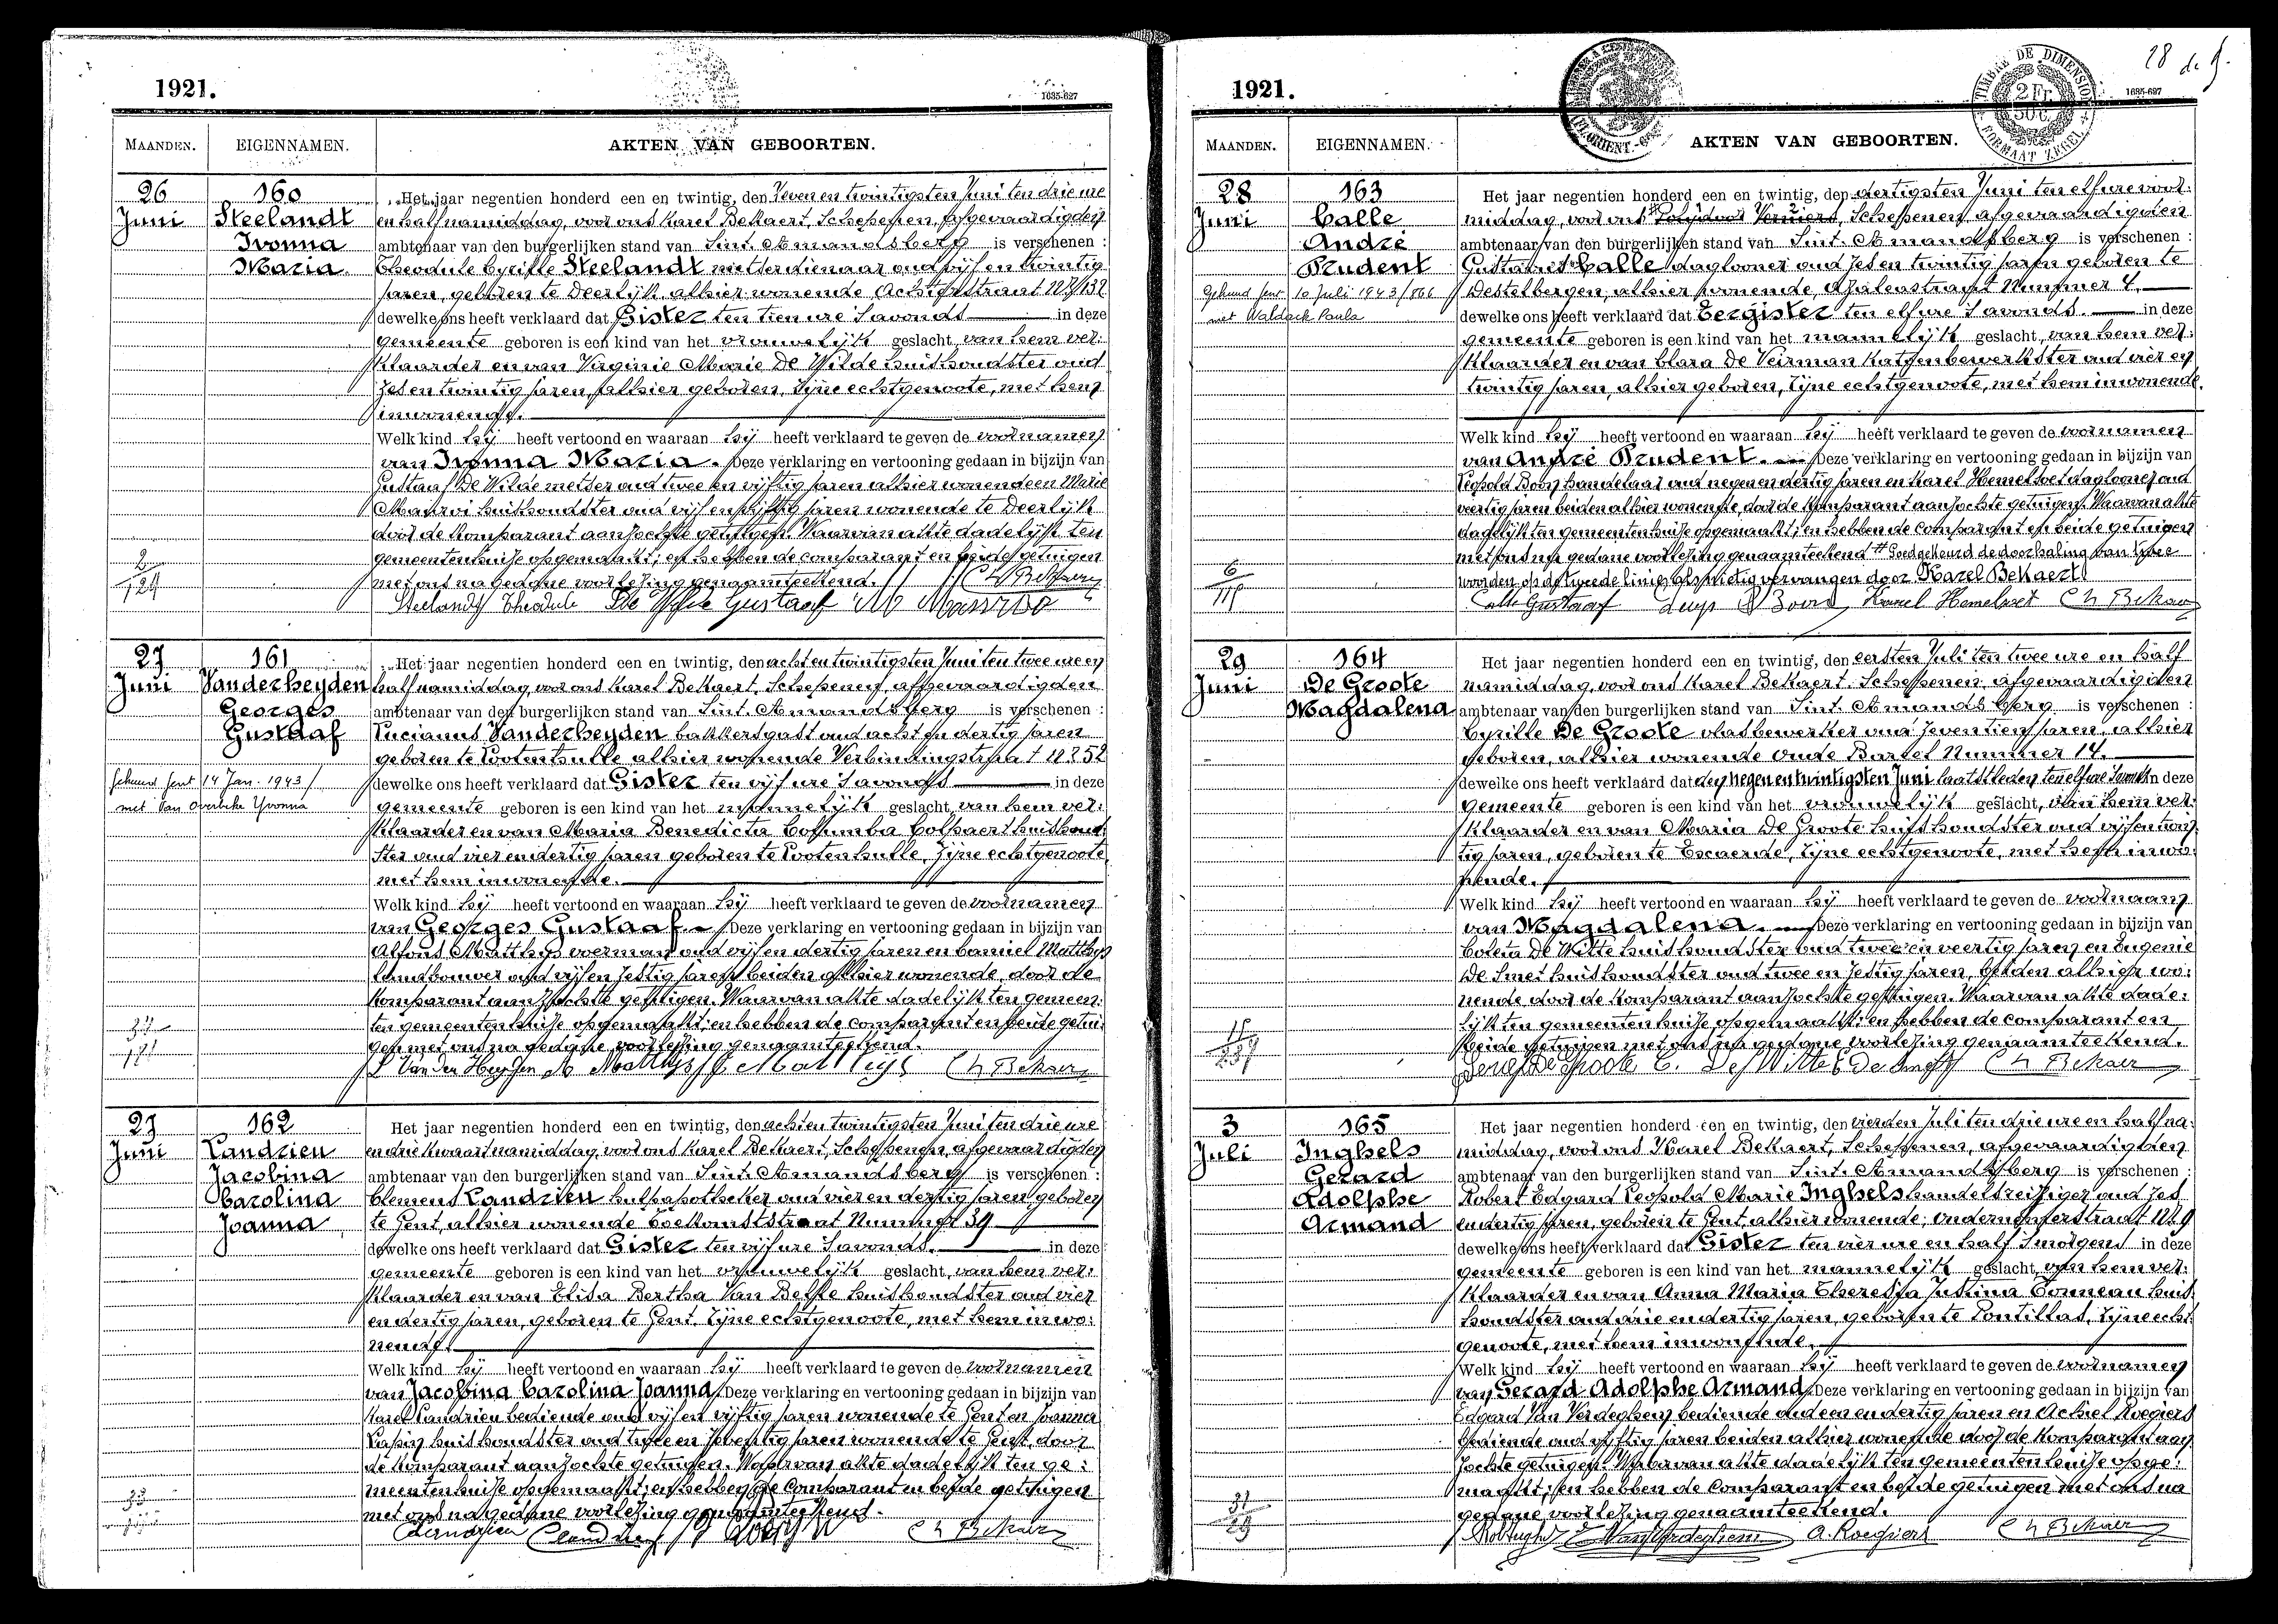 1921.
1635-627
MAANDEN. EIGENNAMEN. AKTEN VAN GEBOORTEN.
26 Juni
160
Steelandt
Ivonna
Maria.
Het jaar negentien honderd een en twintig, den zeven en twintigsten Juni ten drie ure
en half namiddag, voor ons Karel Bekaert, Schepenen, afgevaardigden
ambtenaar van den burgerlijken stand van Sint-Amandsberg is verschenen :
Theodule Cyrille Steelandt metserdienaar oud vijf en twintig
jaren, geboren te Deerlijk, alhier wonende Achterstraat Nr 132
dewelke ons heeft verklaard dat Gister ten tien ure 's avonds in deze
gemeente geboren is een kind van het vrouwelijk geslacht, van hem ver-
klaarder en van Virginie Marie De Wilde huishoudster oud
zes en twintig jaren, alhier geboren, zijne echtgenoote, met hem
inwonende.
Welk kind hij heeft vertoond en waaraan hij heeft verklaard te geven de voornamen
van Ivonna Maria. Deze verklaring en vertooning gedaan in bijzijn van
Gustaaf De Wilde metser oud twee en vijftig jaren alhier wonende en Marie
huishoudster oud vijf en vijftig jaren wonende te Deerlijk
door de komparant aanzochte getuigen. Waarvan akte dadelijk ten
gemeentenhuise opgemaakt; en hebben de comparant en beide getuigen
met ons na gedane voorlezing genaamteekend.
2
124
Steelandt Theodule De Wilde Gustaaf Ch Bekaert
27 Juni
161
Vanderheyden
Georges
Gustaaf
Gehuwd Gent 14 Jan. 1943 /
met Van Overbeke Yvonna
Het jaar negentien honderd een en twintig, den acht en twintigsten Juni ten twee ure en
half namiddag, voor ons Karel Bekaert, Schepenen, afgevaardigden
ambtenaar van den burgerlijken stand van Sint-Amandsberg is verschenen :
Lucianus Vanderheyden bakkersgast oud acht en dertig jaren
geboren te Lootenhulle, alhier wonende Verbindingstraat Nr 52
dewelke ons heeft verklaard dat Gister ten vijf ure 's avonds in deze
gemeente geboren is een kind van het mannelijk geslacht, van hem ver-
klaarder en van Maria Benedicta Columba Colpaert huishoud-
ster oud vier en dertig jaren geboren te Lootenhulle, zijne echtgenoote,
met hem inwonende.
Welk kind hij heeft vertoond en waaraan hij heeft verklaard te geven de voornamen
van Georges Gustaaf. Deze verklaring en vertooning gedaan in bijzijn van
Alfons Matthys voerman oud vijf en dertig jaren en Camiel Matthys
landbouwer oud vijf en zestig jaren beiden alhier wonende, door de
komparant aanzochte getuigen. Waarvan akte dadelijk ten gemeen-
ten gemeentenhuise opgemaakt; en hebben de comparant en beide getui-
gen met ons na gedane voorlezing genaamteekend.
L Vanderheyden A Matthys C Matthys Ch Bekaert
27 Juni
162
Landrien
Jacobina
Carolina
Joanna
Het jaar negentien honderd een en twintig, den acht en twintigsten Juni ten drie ure
en drie kwaart namiddag, voor ons Karel Bekaert, Schepenen, afgevaardigden
ambtenaar van den burgerlijken stand van Sint-Amandsberg is verschenen :
Clemens Landrien hulpapotheker oud vier en dertig jaren geboren
te Gent, alhier wonende Toekomststraat Nummer 39
dewelke ons heeft verklaard dat Gister ten vijf ure 's avonds. in deze
gemeente geboren is een kind van het vrouwelijk geslacht, van hem ver-
klaarder en van Elisa Bertha Van Belle huishoudster oud vier
en dertig jaren, geboren te Gent, zijne echtgenoote, met hem inwo-
nende.
Welk kind hij heeft vertoond en waaraan hij heeft verklaard te geven de voornamen
van Jacobina Carolina Joanna. Deze verklaring en vertooning gedaan in bijzijn van
Karel Landrien bediende oud vijf en vijftig jaren wonende te Gent en Joanna
huishoudster oud twee en zeventig jaren wonende te Gent, door
de komparant aanzochte getuigen. Waarvan akte dadelijk ten ge-
meentenhuise opgemaakt; en hebben de comparant en beide getuigen
met ons na gedane voorlezing genaamteekend.
Landrien Ch Bekaert
28
1921.
TIMBRE DE DIMENSION
2 Fr.
50 C.
FORMAAT ZEGEL
1635-627
MAANDEN. EIGENNAMEN. AKTEN VAN GEBOORTEN.
28 Juni
163
Calle
André
Prudent
Gehuwd Gent 10 Juli 1943 / 866
met Waldack Paula
Het jaar negentien honderd een en twintig, den dertigsten Juni ten elf ure voor-
middag, voor ons Polydoor Verniers, Schepenen, afgevaardigden
ambtenaar van den burgerlijken stand van Sint-Amandsberg is verschenen :
Gustaaf Calle daglooner oud zes en twintig jaren geboren te
Destelbergen, alhier wonende, Azaleastraat Nummer 4.
dewelke ons heeft verklaard dat Eergister ten elf ure 's avonds. in deze
gemeente geboren is een kind van het mannelijk geslacht, van hem ver-
klaarder en van Clara De Veirman katoenbewerkster oud vier en
twintig jaren, alhier geboren, zijne echtgenoote, met hem inwonende.
Welk kind hij heeft vertoond en waaraan hij heeft verklaard te geven de voornamen
van André Prudent. Deze verklaring en vertooning gedaan in bijzijn van
Leopold Boon handelaar oud negen en dertig jaren en Karel Hemelsoet daglooner oud
veertig jaren beiden alhier wonende, door de komparant aanzochte getuigen. Waarvan akte
dadelijk ten gemeentenhuise opgemaakt; en hebben de comparant en beide getuigen
met ons na gedane voorlezing genaamteekend # Goedgekeurd de doorhaling van twee
woorden op de tweede linie, alsmede vervangen door Karel Bekaert
Calle Gustaaf Karel Hemelsoet Ch Bekaert
29 Juni
164
De Groote
Magdalena
Het jaar negentien honderd een en twintig, den eersten Juli ten twee ure en half
namiddag, voor ons Karel Bekaert, Schepenen, afgevaardigden
ambtenaar van den burgerlijken stand van Sint-Amandsberg is verschenen :
Cyrille De Groote vlasbewerker oud zeventien jaren, alhier
geboren, alhier wonende Oude Bareel Nummer 14.
dewelke ons heeft verklaard dat den negen en twintigsten Juni laatstleden ten elf ure 's avonds in deze
gemeente geboren is een kind van het vrouwelijk geslacht, van hem ver-
klaarder en van Maria De Groote huishoudster oud vijf en twin-
tig jaren, geboren te Exaerde, zijne echtgenoote, met hem inwo-
nende.
Welk kind hij heeft vertoond en waaraan hij heeft verklaard te geven de voornaam
van Magdalena. Deze verklaring en vertooning gedaan in bijzijn van
Coleta De Witte huishoudster oud twee en veertig jaren en Eugenie
De Smet huishoudster oud twee en zestig jaren, beiden alhier wo-
nende door de komparant aanzochte getuigen. Waarvan akte dade-
lijk ten gemeentenhuise opgemaakt; en hebben de comparant en
beide getuigen met ons na gedane voorlezing genaamteekend.
C. De Witte E De Smet Ch Bekaert
3 Juli
165
Inghels
Gerard
Adolphe
Armand
Het jaar negentien honderd een en twintig, den vierden Juli ten drie ure en half na-
middag, voor ons Karel Bekaert, Schepenen, afgevaardigden
ambtenaar van den burgerlijken stand van Sint-Amandsberg is verschenen :
Robert Edgard Leopold Marie Inghels handelsreiziger oud zes
en dertig jaren, geboren te Gent, alhier wonende; Ondernemerstraat Nr 9
dewelke ons heeft verklaard dat Gister ten vier ure en half 's morgens in deze
gemeente geboren is een kind van het mannelijk geslacht, van hem ver-
klaarder en van Anna Maria Theresia Justina Bonneau huis-
houdster oud drie en dertig jaren geboren te Pontillas, zijne echt-
genoote, met hem inwonende.
Welk kind hij heeft vertoond en waaraan hij heeft verklaard te geven de voornamen
van Gerard Adolphe Armand. Deze verklaring en vertooning gedaan in bijzijn van
Edgard Van Verdeghem bediende oud een en dertig jaren en Achiel Roegiers
bediende oud vijftig jaren beiden alhier wonende door de komparant aan-
zochte getuigen. Waarvan akte dadelijk ten gemeentenhuise opge-
maakt; en hebben de comparant en beide getuigen met ons na
gedane voorlezing genaamteekend.
31
29
E Van Verdeghem A. Roegiers Ch Bekaert